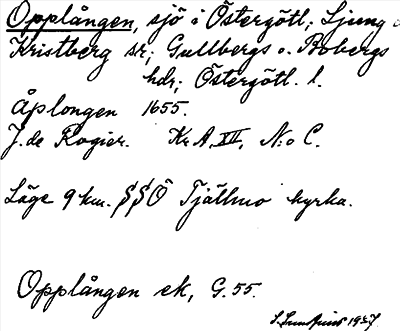 Opplången, sjö i Östergötl; Ljung o
Kristberg sr; Gullbergs o. Bobergs
hdr; Östergötl. l.
Åplongen 1655.
J. de Rogier. Kr A, XII, N:o C.
Läge 9 km. SSÖ Tjällmo kyrka.
Opplången ek, G. 55.
S. Lundquist 1937